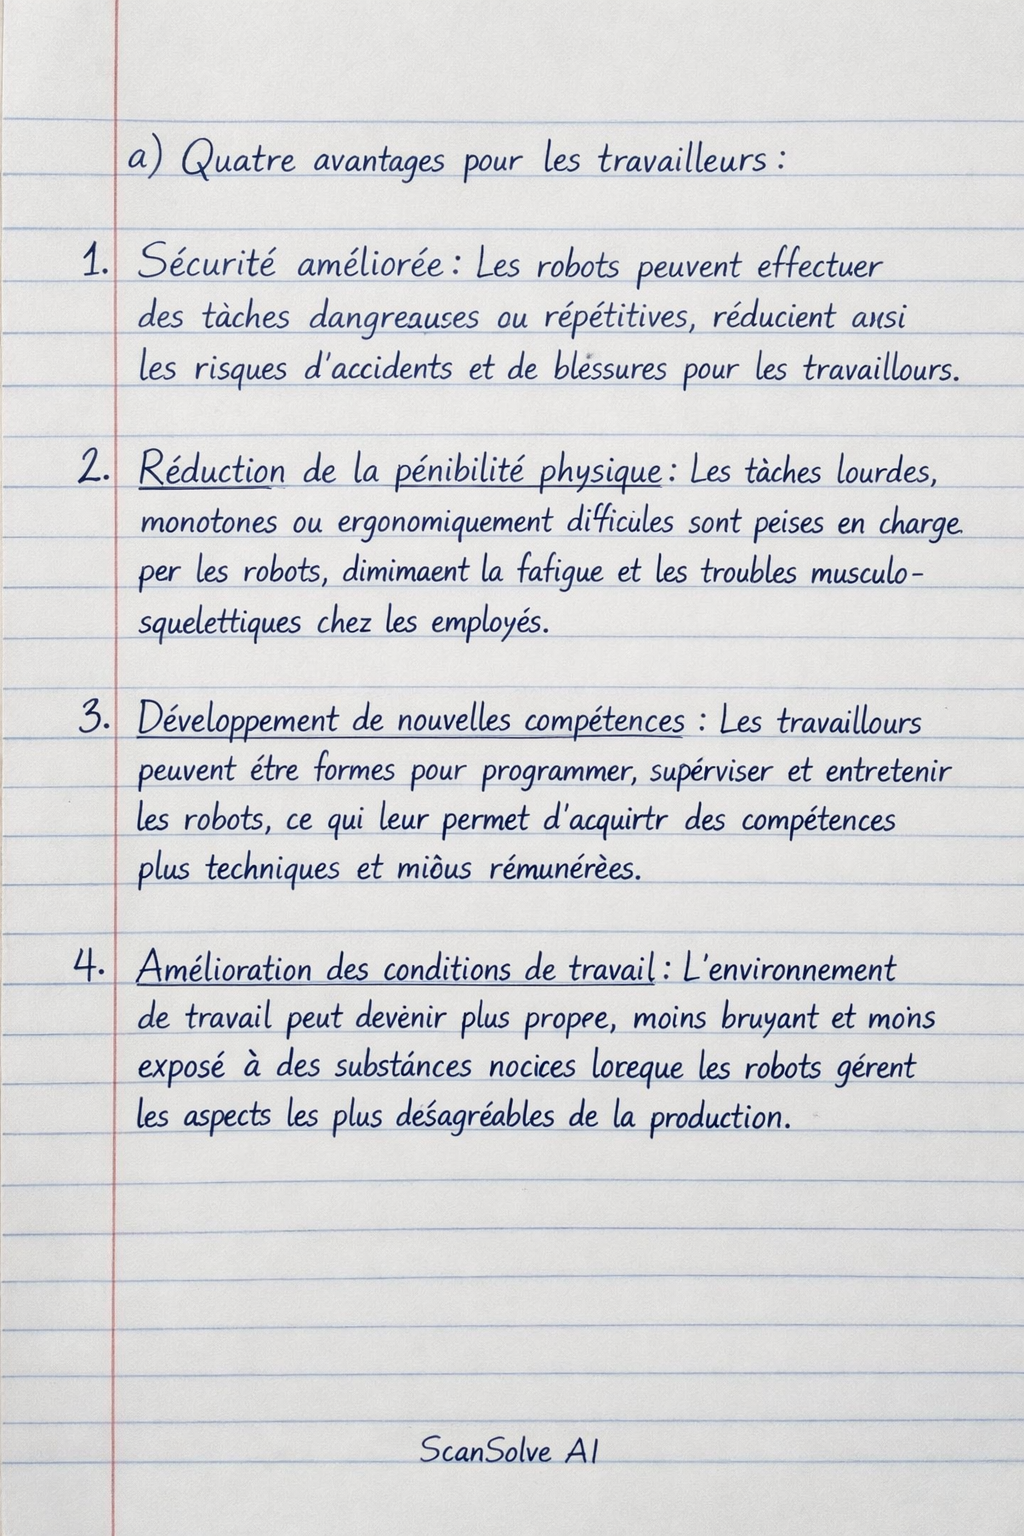 a) Quatre avantages pour les travailleurs :
1. Sécurité améliorée : Les robots peuvent effectuer
des tàches dangreauses ou répétitives, réducient ausi
les risques d'accidents et de bléssures pour les travaillours.
2. Réduction de la pénibilité physique : Les tàches lourdes,
monotones ou ergonomiquement difficules sont peises en charge
per les robots, dimimaent la fafigue et les troubles musculo-
squelettiques chez les employés.
3. Développement de nouvelles compétences : Les travaillours
peuvent étre formes pour programmer, supérviser et entretenir
les robots, ce qui leur permet d'acquirtr des compétences
plus techniques et miôus rémunérèes.
4. Amélioration des conditions de travail : L'environnement
de travail peut devenir plus propee, moins bruyant et mons
exposé à des substánces nocices loreque les robots gérent
les aspects les plus deśagréables de la production.
ScanSolve AI